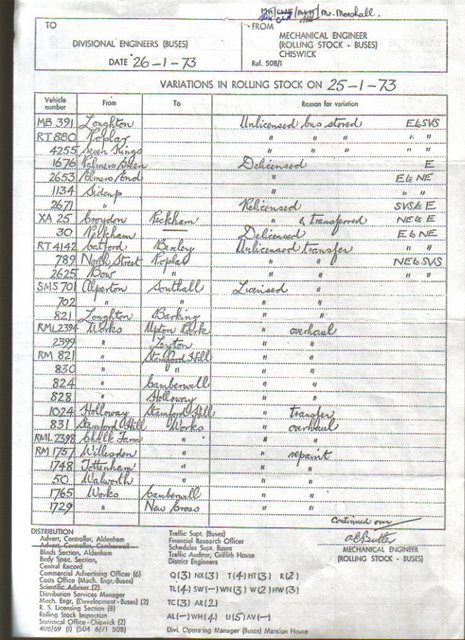 Mr. Marshall.
TO
DIVISIONAL ENGINEERS (BUSES)
DATE 26-1-73
FROM
MECHANICAL ENGINEER
(ROLLING STOCK - BUSES)
CHISWICK
Ref. 508/1
VARIATIONS IN ROLLING STOCK ON 25-1-73
Vehicle number From To Reason for variation
MB 391 Loughton Unlicensed bus stored E&SVS
RT 880 Poplar " " " " "
4255 Seven Kings " " " " "
1676 Palmers Green Delicensed E
2653 Elmers End " E & NE
1134 Sidcup " " "
2671 " Relicensed SVS & E
XA 25 Croydon Peckham " & transferred NE & E
30 Peckham Delicensed E & NE
RT 4142 Catford Bexley Unlicensed transfer " "
789 North Street Poplar " " NE & SVS
2625 Bow " " "
SMS 701 Alperton Southall Licensed "
702 " " " "
821 Loughton Barking " "
RML 2394 Works Upton Park " overhaul
2399 " Leyton " "
RM 821 " Stamford Hill " "
830 " " " "
824 " Camberwell " "
828 " Holloway " "
1024 Holloway Stamford Hill " transfer
831 Stamford Hill Works " overhaul
RML 2398 Chalk Farm " " "
RM 1757 Willesden " " repaint
1748 Tottenham " " "
50 Walworth " " "
1765 Works Camberwell " "
1729 " New Cross " "
Continued over
MECHANICAL ENGINEER
(ROLLING STOCK - BUSES)
DISTRIBUTION
Advert. Controller, Aldenham
Advert. Controller, Camberwell
Blinds Section, Aldenham
Body Spec. Section,
Central Record
Commercial Advertising Officer (6)
Costs Office (Mech. Engr-Buses)
Scientific Adviser (2)
Distribution Services Manager
Mech. Engr. (Development - Buses) (2)
R. S. Licensing Section (8)
Rolling Stock Inspection
Statistical Office - Chiswick (2)
Traffic Supt. (Buses)
Financial Research Officer
Schedules Supt. Buses
Traffic Auditor, Griffith House
District Engineers
Q(3) NX(3) T(4) HT(3) R(2)
TL(4) SW(-) WN(3) W(2) HW(3)
TC(3) AR(2)
AL(-) WH(4) U(5) AV(-)
Divl. Operating Manager (Buses) Mansion House